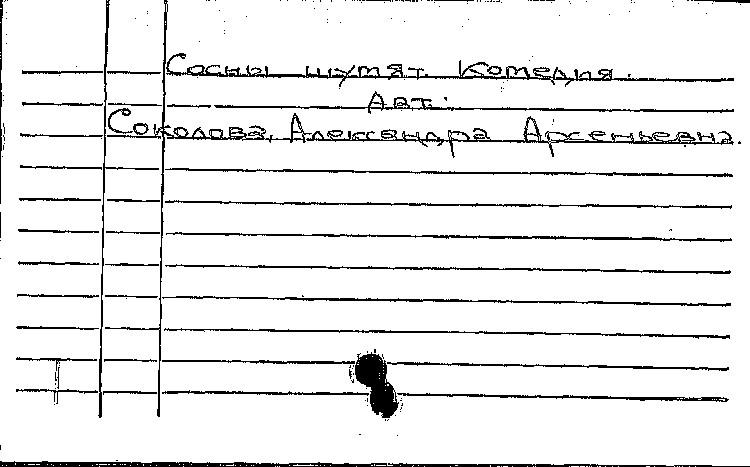 Сосны шумят. Комедия.
Авт.:
Соколова, Александра Арсеньевна.